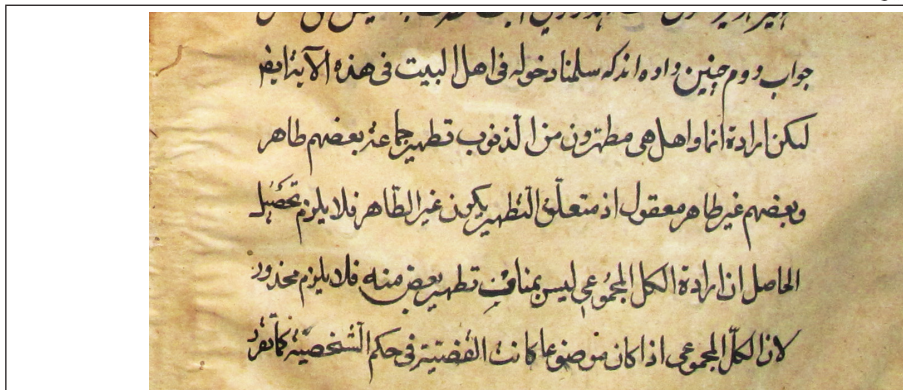 جواب دوم چنین داده اند که سلمنا دخوله فی اهل البیت فی هذه الآیة ایضا
لیکن ارادة انا و اهل هی مطهرون من الذنوب تطهیر جماعة بعضهم طاهر
وبعضهم غیر طاهر معقول اذ متعلق التطهیر یکون غیر الطاهر فلا یلزم تحصیل
الحاصل ان ارادة الکل المجموعی لیس بمناف تطهیر بعض منه فلا یلزم محذور
لان الکل المجموعی اذا کان موضوعا کانت القضیة فی حکم الشخصیة کما تقرر